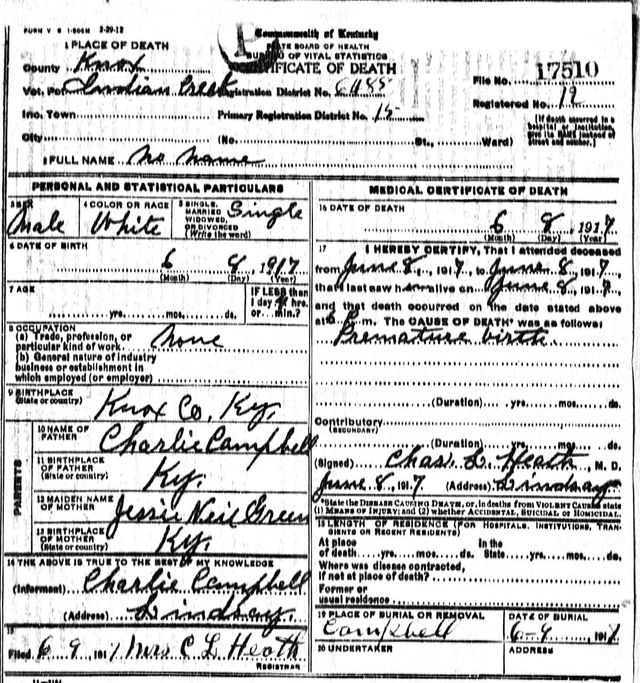 FORM V S 1-500M 2-29-12
Commonwealth of Kentucky
STATE BOARD OF HEALTH
BUREAU OF VITAL STATISTICS
CERTIFICATE OF DEATH
1 PLACE OF DEATH
County Knox
Vot. Pct Indian Creek Registration District No. 6985
File No. 17510
Inc. Town Primary Registration District No. 15
Registered No. 19
City (No. St., Ward)
[If death occurred in a hospital or institution, give its NAME instead of street and number.]
2 FULL NAME No name
PERSONAL AND STATISTICAL PARTICULARS
3 SEX Male
4 COLOR OR RACE White
5 SINGLE, MARRIED WIDOWED, OR DIVORCED (Write the word) Single
6 DATE OF BIRTH
6 8 1917
(Month) (Day) (Year)
7 AGE
yrs. mos. ds.
IF LESS than
1 day, hrs.
or min.?
8 OCCUPATION
(a) Trade, profession, or
particular kind of work None
(b) General nature of industry
business or establishment in
which employed (or employer)
9 BIRTHPLACE
(State or country) Knox Co, Ky.
PARENTS
10 NAME OF
FATHER Charlie Campbell
11 BIRTHPLACE
OF FATHER
(State or country) Ky.
12 MAIDEN NAME
OF MOTHER Jessie Neil Green
13 BIRTHPLACE
OF MOTHER
(State or country) Ky.
14 THE ABOVE IS TRUE TO THE BEST OF MY KNOWLEDGE
(Informant) Charlie Campbell
(Address) Lindsay.
15
Filed 6 9 1917 Mrs C L Heath
REGISTRAR
MEDICAL CERTIFICATE OF DEATH
16 DATE OF DEATH
6 8 1917
(Month) (Day) (Year)
17 I HEREBY CERTIFY, That I attended deceased
from June 8, 1917, to June 8, 1917,
that I last saw h alive on June 8, 1917,
and that death occurred on the date stated above
at 6 P.m. The CAUSE OF DEATH* was as follows:
Premature birth.
(Duration) yrs. mos. ds.
Contributory
(SECONDARY)
(Duration) yrs. mos. ds.
(Signed) Chas. L. Heath, M. D.
June 8, 1917 (Address) Lindsay
*State the DISEASE CAUSING DEATH, or, in deaths from VIOLENT CAUSES state
(1) MEANS OF INJURY; and (2) whether ACCIDENTAL, SUICIDAL or HOMICIDAL.
18 LENGTH OF RESIDENCE (FOR HOSPITALS, INSTITUTIONS, TRANSIENTS OR RECENT RESIDENTS)
At place In the
of death yrs. mos. ds. State yrs. mos. ds.
Where was disease contracted,
if not at place of death?
Former or
usual residence
19 PLACE OF BURIAL OR REMOVAL
Campbell
DATE OF BURIAL
6-9, 1917
20 UNDERTAKER
ADDRESS